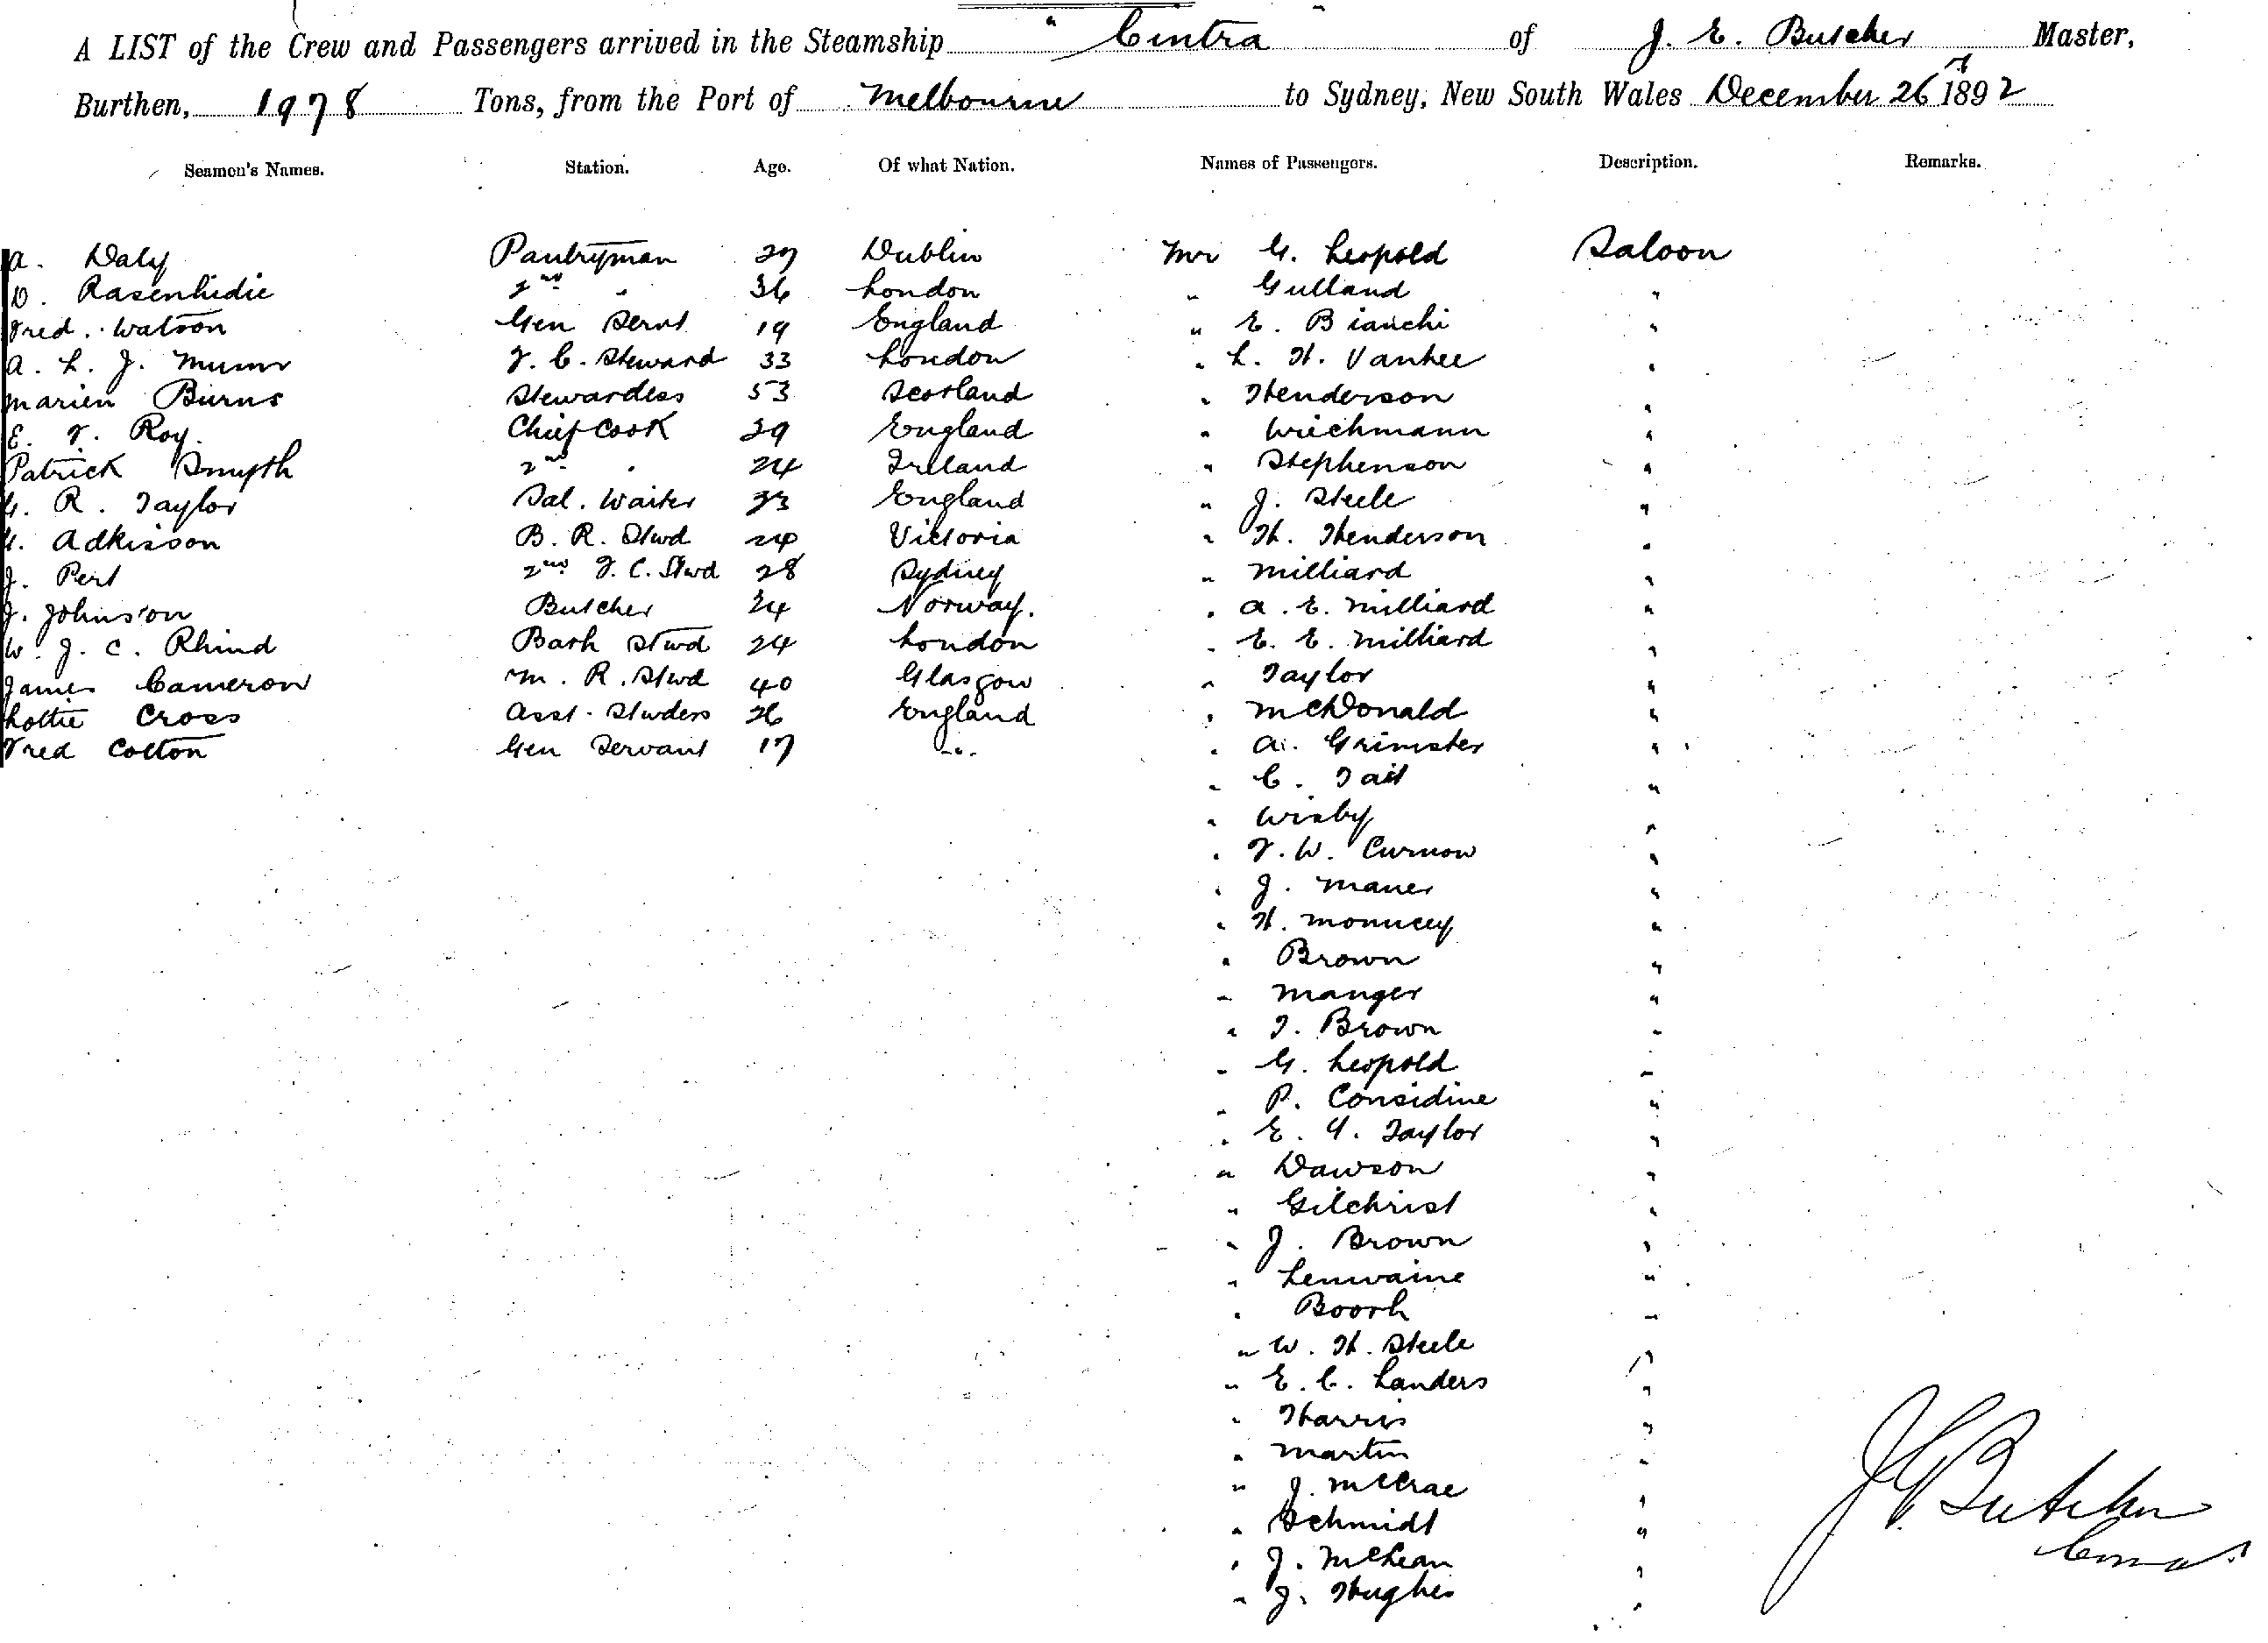 A LIST of the Crew and Passengers arrived in the Steamship "Cintra" of J. E. Butcher Master,
Burthen, 1978 Tons, from the Port of Melbourne to Sydney, New South Wales December 26th 1892
Seamen's Names. Station. Age. Of what Nation. Names of Passengers. Description. Remarks.
A. Daly Pantryman 27 Dublin Mr G. Leopold Saloon
D. Rasenhidie 2nd " 36 London " Gulland "
Fred. Watson Gen Servt 19 England " E. Bianchi "
A. L. J. Munn F. C. Steward 33 London " L. H. Vanhee "
Marien Burns Stewardess 53 Scotland " Henderson "
E. F. Roy. Chief Cook 29 England " Wiechmann "
Patrick Smyth 2nd " 24 Ireland " Stephenson "
G. R. Taylor Sal. Waiter 23 England " J. Steele "
G. Adkisson B. R. Stwd 24 Victoria " H. Henderson "
J. Pert 2nd F. C. Stwd 28 Sydney " Milliard "
J. Johnson Butcher 24 Norway. " A. E. Milliard "
W. J. C. Rhind Bath Stwd 24 London " E. E. Milliard "
James Cameron M. R. Stwd 40 Glasgow " Taylor "
Lottie Cross Asst. Stwdess 26 England " McDonald "
Fred Cotton Gen Servant 17 " " A. Grimster "
" C. Tait "
" Wisby "
" F. W. Curnow "
" J. Maner "
" H. "
" Brown "
" Manger "
" T. Brown "
" G. Leopold "
" P. Considine "
" E. Y. Taylor "
" Dawson "
" Gilchrist "
" J. Brown "
" Lenwaine "
" Booth "
" W. H. Steele "
" E. C. Landers "
" Harris "
" Martin "
" J. McCrae "
" Schmidt "
" J. McLean "
" J. Hughes "
J E Butcher